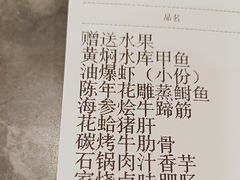 品名
赠送水果
黄焖水库甲鱼
油爆虾（小份）
陈年花雕蒸鲥鱼
海参烩牛蹄筋
花蛤猪肝
碳烤牛肋骨
石锅肉汁香芋